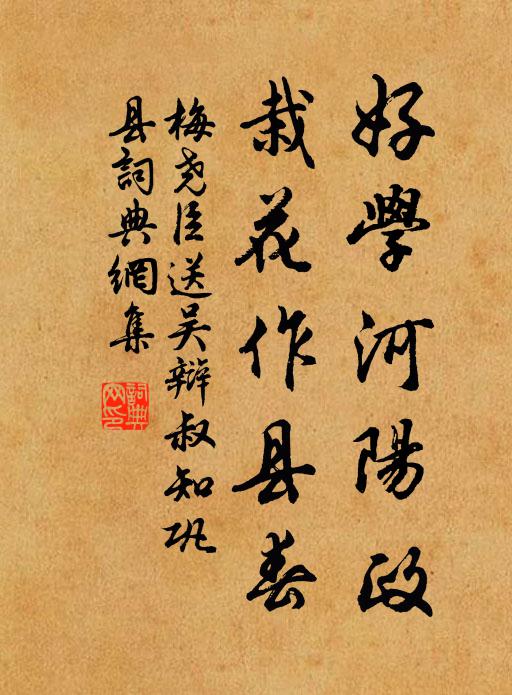 好學河陽政
栽花作县春
梅尧臣送吴辯叔知巩
县詞典網集
詞典網印